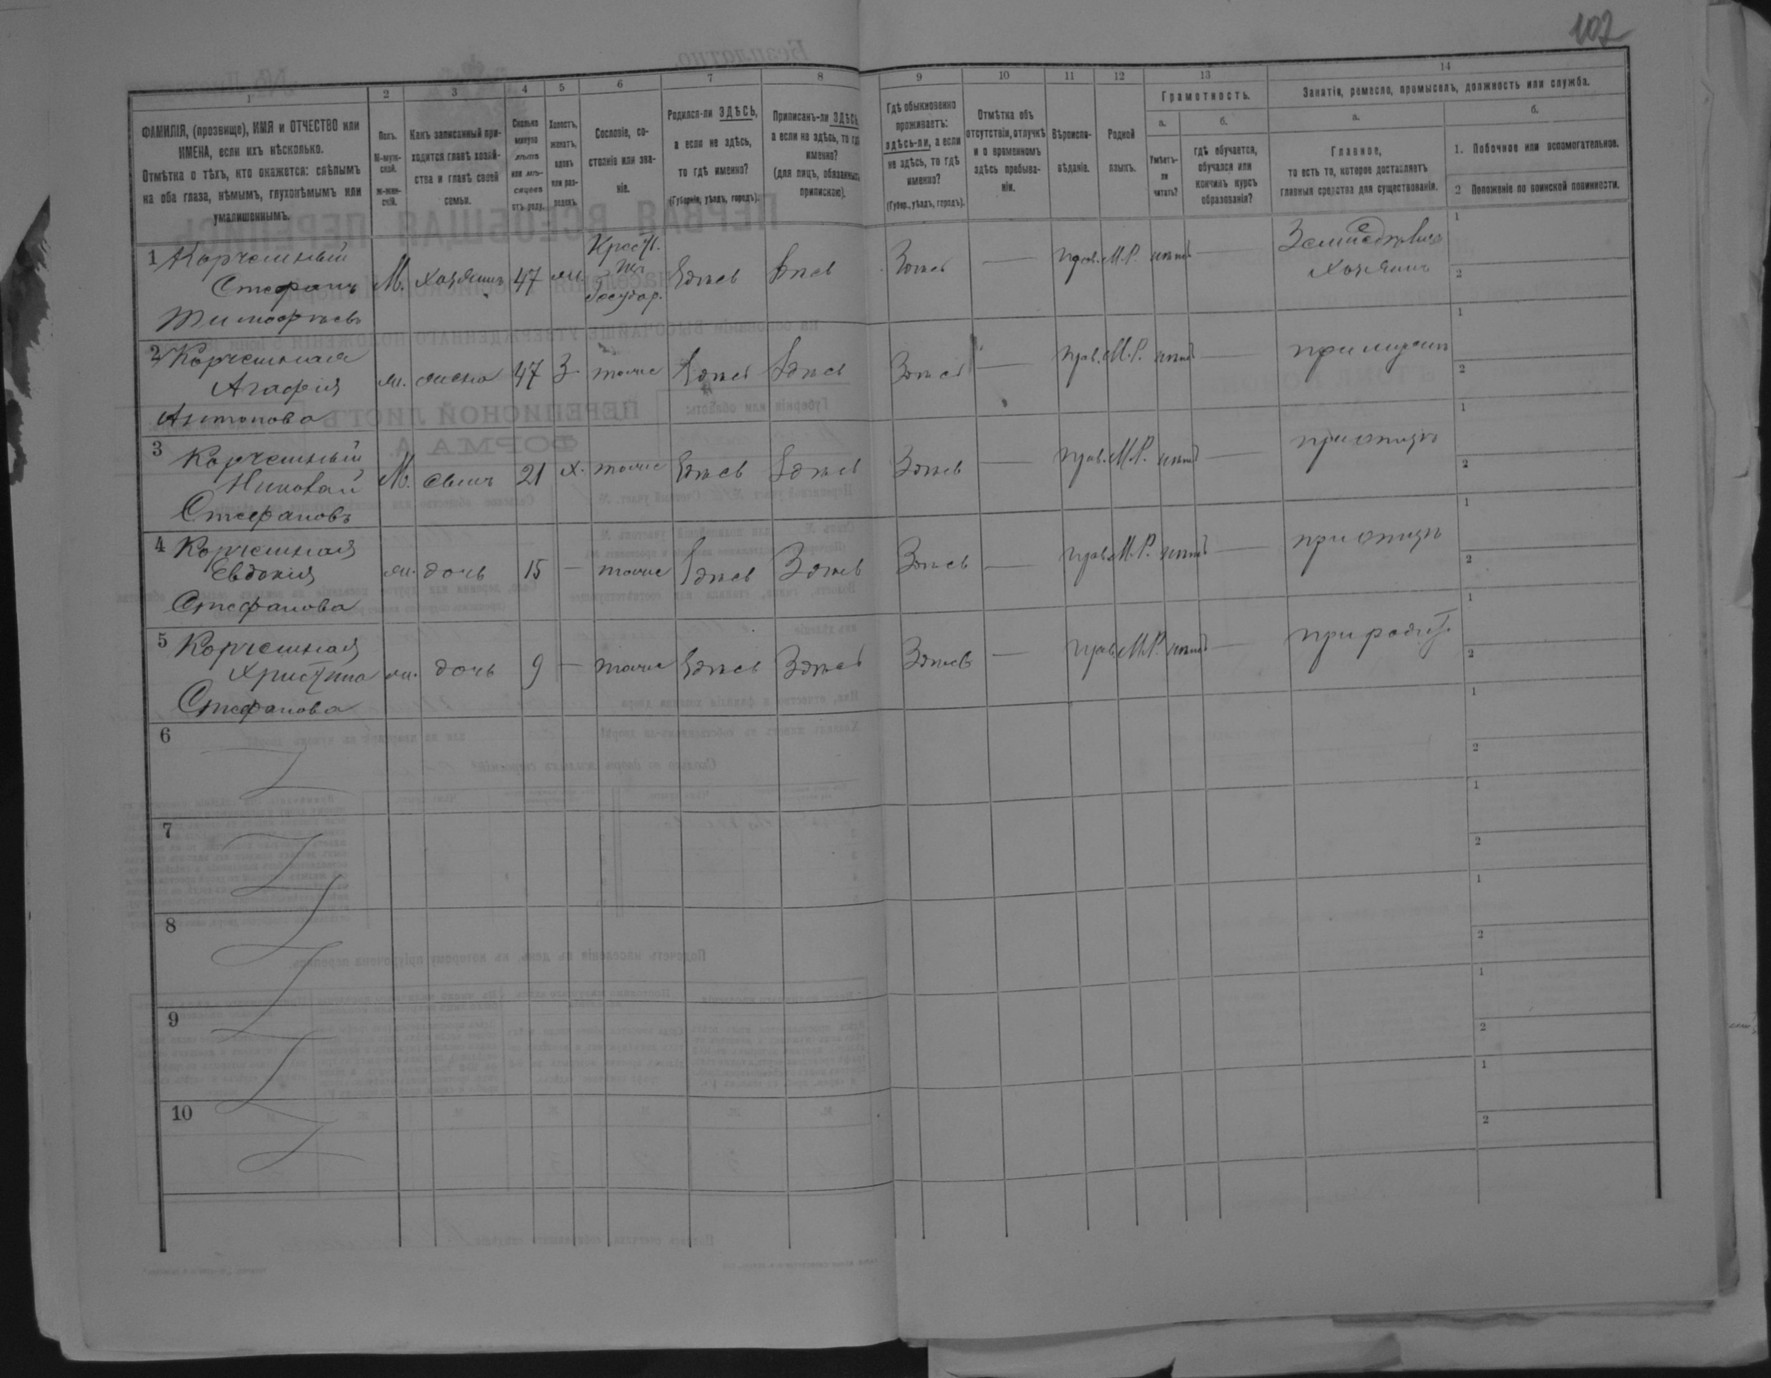 107
1 2 3 4 5 6 7 8 9 10 11 12 13 14
ФАМИЛІЯ, (прозвище), ИМЯ и ОТЧЕСТВО или
ИМЕНА, если ихъ нѣсколько.
Отмѣтка о тѣхъ, кто окажется: слѣпымъ
на оба глаза, нѣмымъ, глухонѣмымъ или
умалишоннымъ.
Полъ.
М-муж-
ской.
Ж-жен-
скій.
Какъ записанный при-
ходится главѣ хозяй-
ства и главѣ своей
семьи.
Сколько
минуло
лѣтъ
или мѣ-
сяцевъ
отъ роду.
Холостъ,
женатъ,
вдовъ
или раз-
веденъ.
Сословіе, со-
стояніе или зва-
ніе.
Родился-ли ЗДѢСЬ,
а если не здѣсь,
то гдѣ именно?
(Губернія, уѣздъ, городъ).
Приписанъ-ли ЗДѢСЬ,
а если не здѣсь, то гдѣ
именно?
(для лицъ, обязанныхъ
припискою).
Гдѣ обыкновенно
проживаетъ:
здѣсь-ли, а если
не здѣсь, то гдѣ
именно?
(Губер., уѣздъ, городъ).
Отмѣтка объ
отсутствіи, отлучкѣ
и о временномъ
здѣсь пребыва-
ніи.
Вѣроиспо-
вѣданіе.
Родной
языкъ.
Грамотность.
а.
Умѣетъ-
ли
читать?
б.
гдѣ обучается,
обучался или
кончилъ курсъ
образованія?
Занятія, ремесло, промыселъ, должность или служба.
а.
Главное,
то есть то, которое доставляетъ
главныя средства для существованія.
б.
1. Побочное или вспомогательное.
2 Положеніе по воинской повинности.
1 Корчемный
Стефанъ
Тимофѣевъ
М. хозяинъ 47 ж Крест.
из
Государ. Здѣсь Здѣсь Здѣсь — прав. М.Р. нѣтъ — Земледѣлецъ
хозяинъ 1 2
2 Корчемная
Агафія
Антонова
ж. жена 47 З тоже Здѣсь Здѣсь Здѣсь — прав. М.Р. нѣтъ — при мужѣ 1 2
3 Корчемный
Николай
Стефановъ
М. сынъ 21 х. тоже Здѣсь Здѣсь Здѣсь — прав. М.Р. нѣтъ — при отцѣ 1 2
4 Корчемная
Евдокія
Стефанова
ж. дочь 15 — тоже Здѣсь Здѣсь Здѣсь — прав. М.Р. нѣтъ — при отцѣ 1 2
5 Корчемная
Христина
Стефанова
ж. дочь 9 — тоже Здѣсь Здѣсь Здѣсь — прав. М.Р. нѣтъ — при родит. 1 2
6 1 2
7 1 2
8 1 2
9 1 2
10 1 2